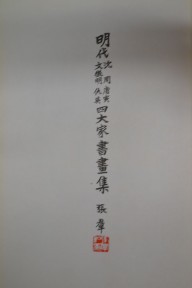 明代沈周唐寅文徵明仇英四大家書畫集
張羣